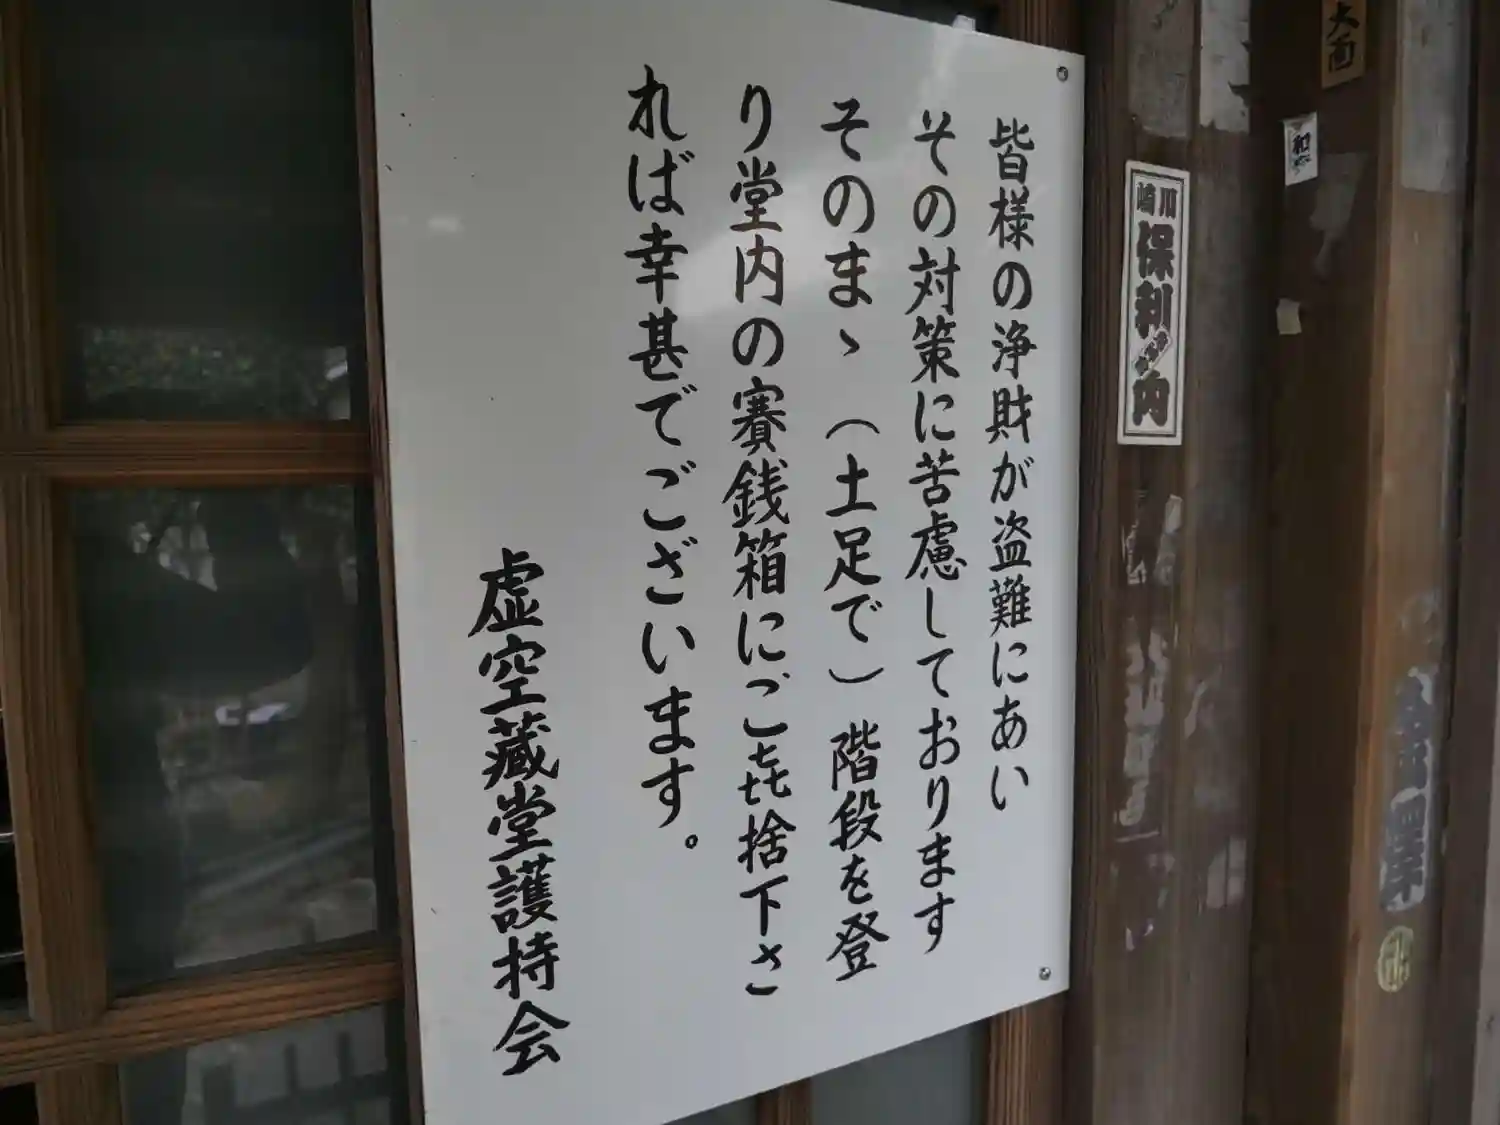 皆様の浄財が盗難にあい
その対策に苦慮しております
そのまゝ（土足で）階段を登
り堂内の賽銭箱にご㐂捨下さ
れば幸甚でございます。
虚空藏堂護持会
川崎
保利内